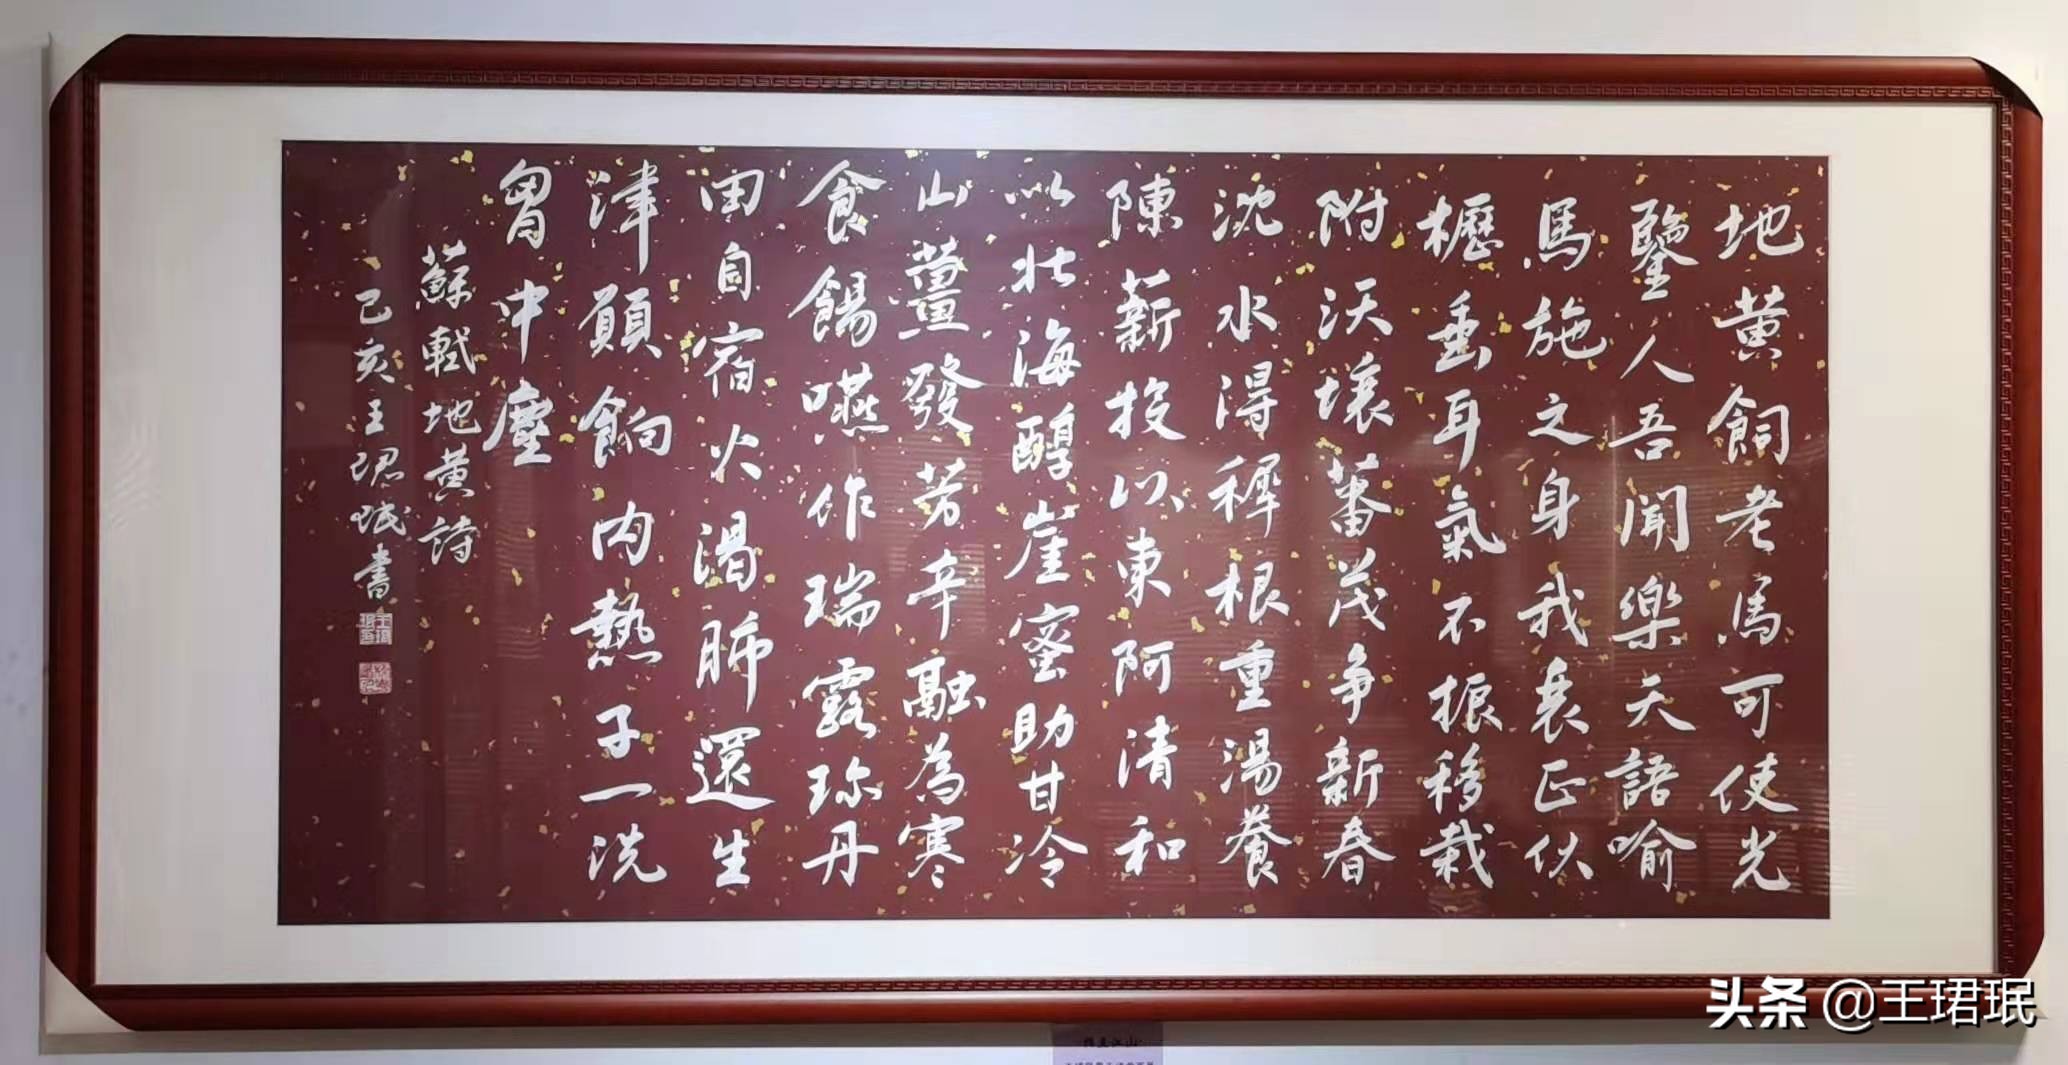 地黄飼老馬可使光
鑒人吾聞樂天語喻
馬施之身我衰正伏
櫪垂耳氣不振移栽
附沃壤蕃茂争新春
沈水得稺根重湯養
陳薪投以東阿清和
以北海醇崖蜜助甘冷
山薑發芳辛融為寒
食餳嚥作瑞露珎丹
田自宿火渴肺還生
津願餉内熱子一洗
胷中塵
蘇軾地黄詩
己亥王珺珉書
头条 @王珺珉